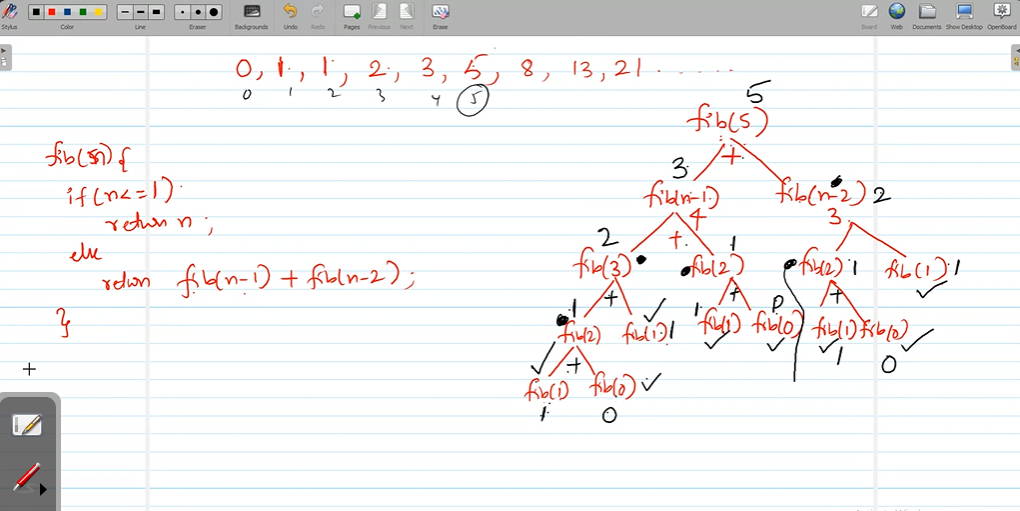 Stylus Color Line Eraser Backgrounds Undo Redo Pages Previous Next Erase Board Web Documents Show Desktop OpenBoard
0, 1, 1, 2, 3, 5, 8, 13, 21 ........
0 1 2 3 4 5
5
fib(5)
+
3
fib(n-1) fib(n-2) 2
4 3
fib(5n){
if(n<=1)
return n;
else
return fib(n-1) + fib(n-2);
}
2 + 1
fib(3) fib(2) fib(2) 1 fib(1) 1
+ + +
1 1 0
fib(2) fib(1) 1 fib(1) fib(0) fib(1) fib(0)
+ 1 0
fib(1) fib(0)
1 0